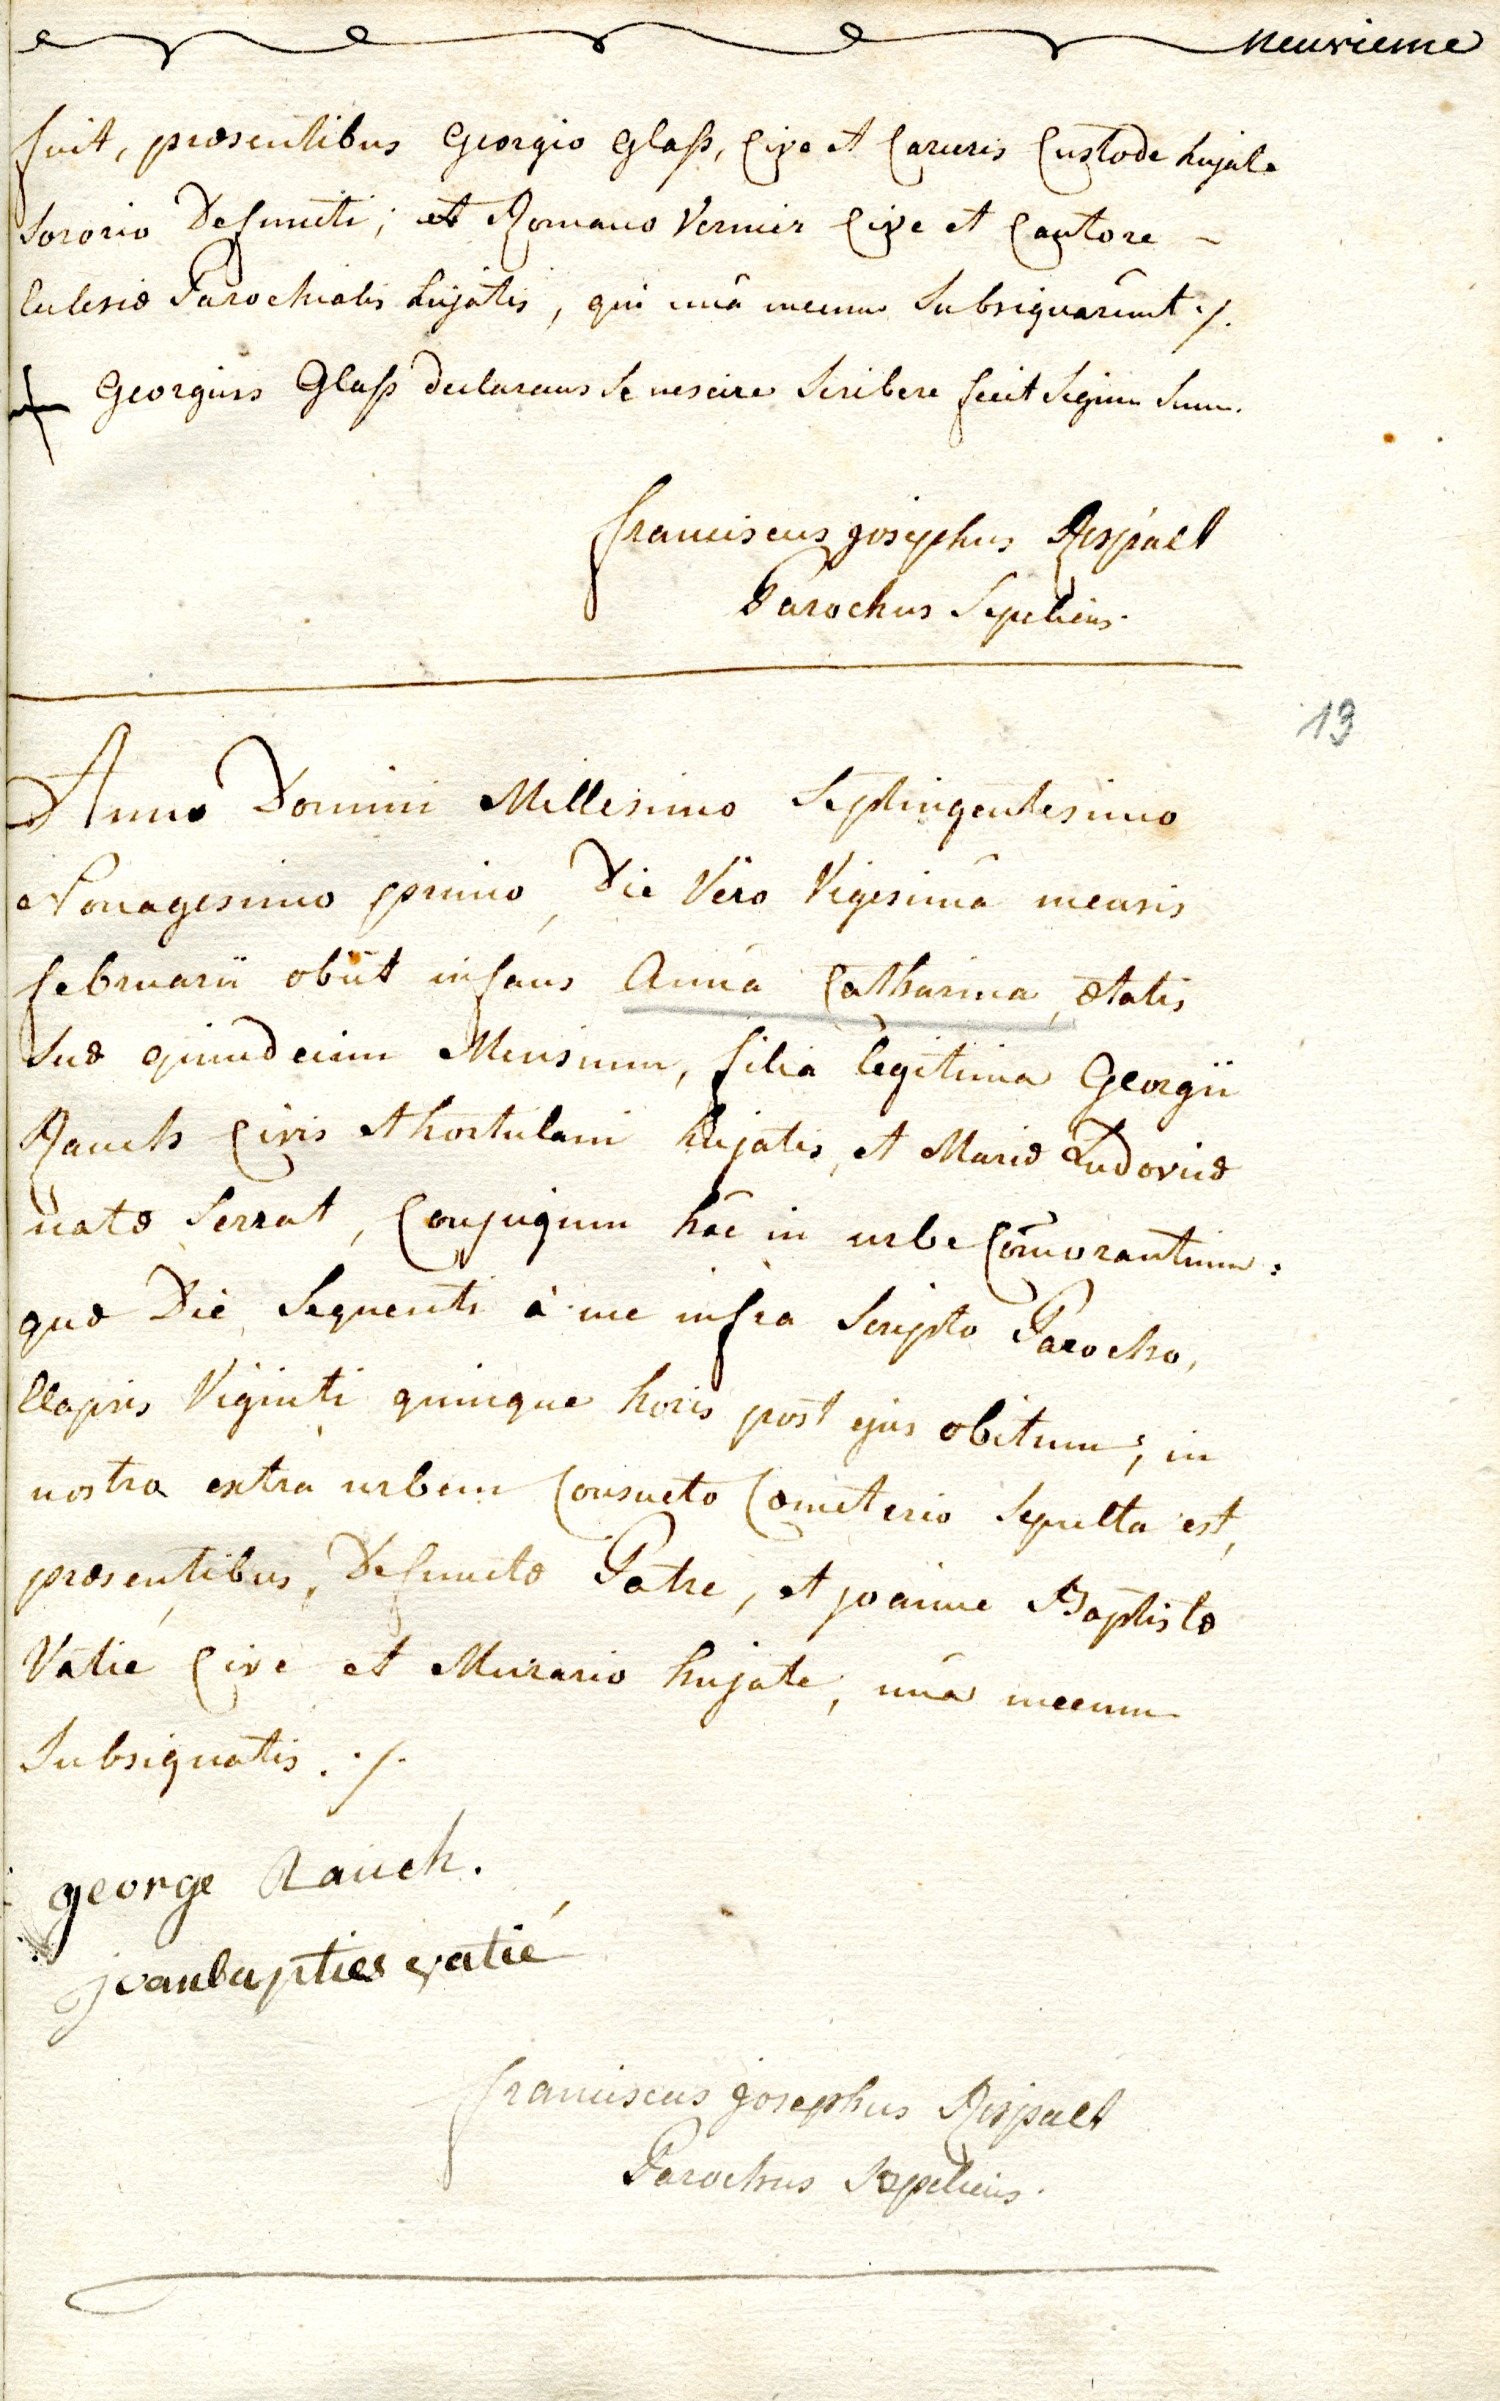 neuvieme
fuit, præsentibus Georgio Glaß, Cive et Carceris Custode hujate
Sororio Defuncti; et Romano Vernier Cive et Cantore -
Ecclesiæ Parochialis hujatis, qui unâ mecum Subsignarunt ./.
Georgius Glaß declarans Se nescire Scribere fecit Signum Suum.
franciscus josephus Rispalt
Parochus Sepeliens.
13
Anno Domini Millesimo Septingentesimo
Nonagesimo primo, Die Vero Vigesimâ mensis
februarii obiit infans Anna Catharina, ætatis
Suæ quindecim Mensium, filia legitima Georgii
Rauch Civis et hortulani hujatis, et Mariæ Ludovicæ
natæ Serrat, Conjugum hâc in urbe Com̄orantium:
quæ Die Sequenti à me infra Scripto Parocho,
Elapsis Viginti quinque horis post ejus obitum, in
nostro extra urbem Consueto Cœmeterio Sepulta est,
præsentibus, Defunctæ Patre, et joanne Baptistæ
Vatié Cive et Murario hujate, unâ mecum
Subsignatis ./.
george Rauch.
jeanbapties vatié
franciscus josephus Rispalt
Parochus Sepeliens.